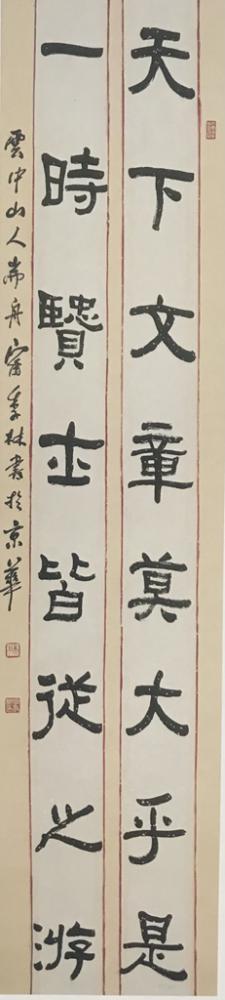 天下文章莫大乎是
一時贒士皆從之游
雲中山人耑舟甯季林書於京華